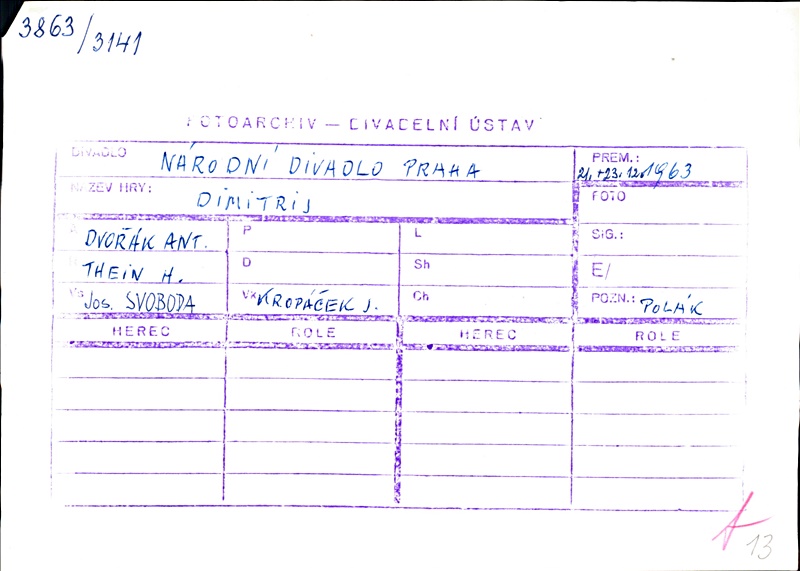 3863/3141
FOTOARCHIV – DIVADELNÍ ÚSTAV
DIVADLO NÁRODNÍ DIVADLO PRAHA
PREM.: 21.+23.12.1963
NÁZEV HRY: DIMITRIJ
FOTO
A DVOŘÁK ANT. P L SIG.:
THEIN H. D Sh E/
Jos. SVOBODA VK KROPÁČEK J. Ch POZN.: POLÁK
HEREC ROLE HEREC ROLE
13